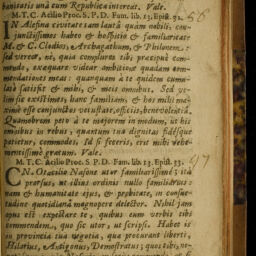 humanitatis unà cum Republica intereat. Vale.
M.T.C. Acilio Proc. S. P. D. Fam. lib. 13. Epist. 32. 56
IN Alesina civitate tam lautâ quàm nobili, con-
junctissimos habeo & hospitio & familiaritate
M. & C. Clodios, Archagathum, & Philonem:
sed vereor, ne, quia complures tibi præcipuè com-
mendo, exæquare videar ambitione quadam com-
mendationes meas: quanquam à te quidem cumu-
latè satisfit & mihi, & meis omnibus. Sed ve-
lim sic existimes, hanc familiam, & hos mihi ma-
ximè esse conjunctos vetustate, officiis, benevolentiâ.
Quamobrem peto à te majorem in modum, ut his
omnibus in rebus, quantum tua dignitas fidésque
patietur, commodes. Id si feceris, erit mihi vehe-
mentissimè gratum. Vale.
M. T. C. Acilio Proc. S. P. D. Fam. lib. 13. Epist. 33. 57
CN. Otacilio Nasone utor familiarissimè, ità
prorsus, ut illius ordinis nullo familiariùs:
nam & humanitate ejus, & probitate, in consue-
tudine quotidianâ magnopere delector. Nihil jam
opus est expectare te, quibus eum verbis tibi
commendem, quo sic utor, ut scripsi. Habet is
in provincia tua negotia, quæ procurant liberti,
Hilarius, Antigonus, Demostratus; quos tibi, ne-